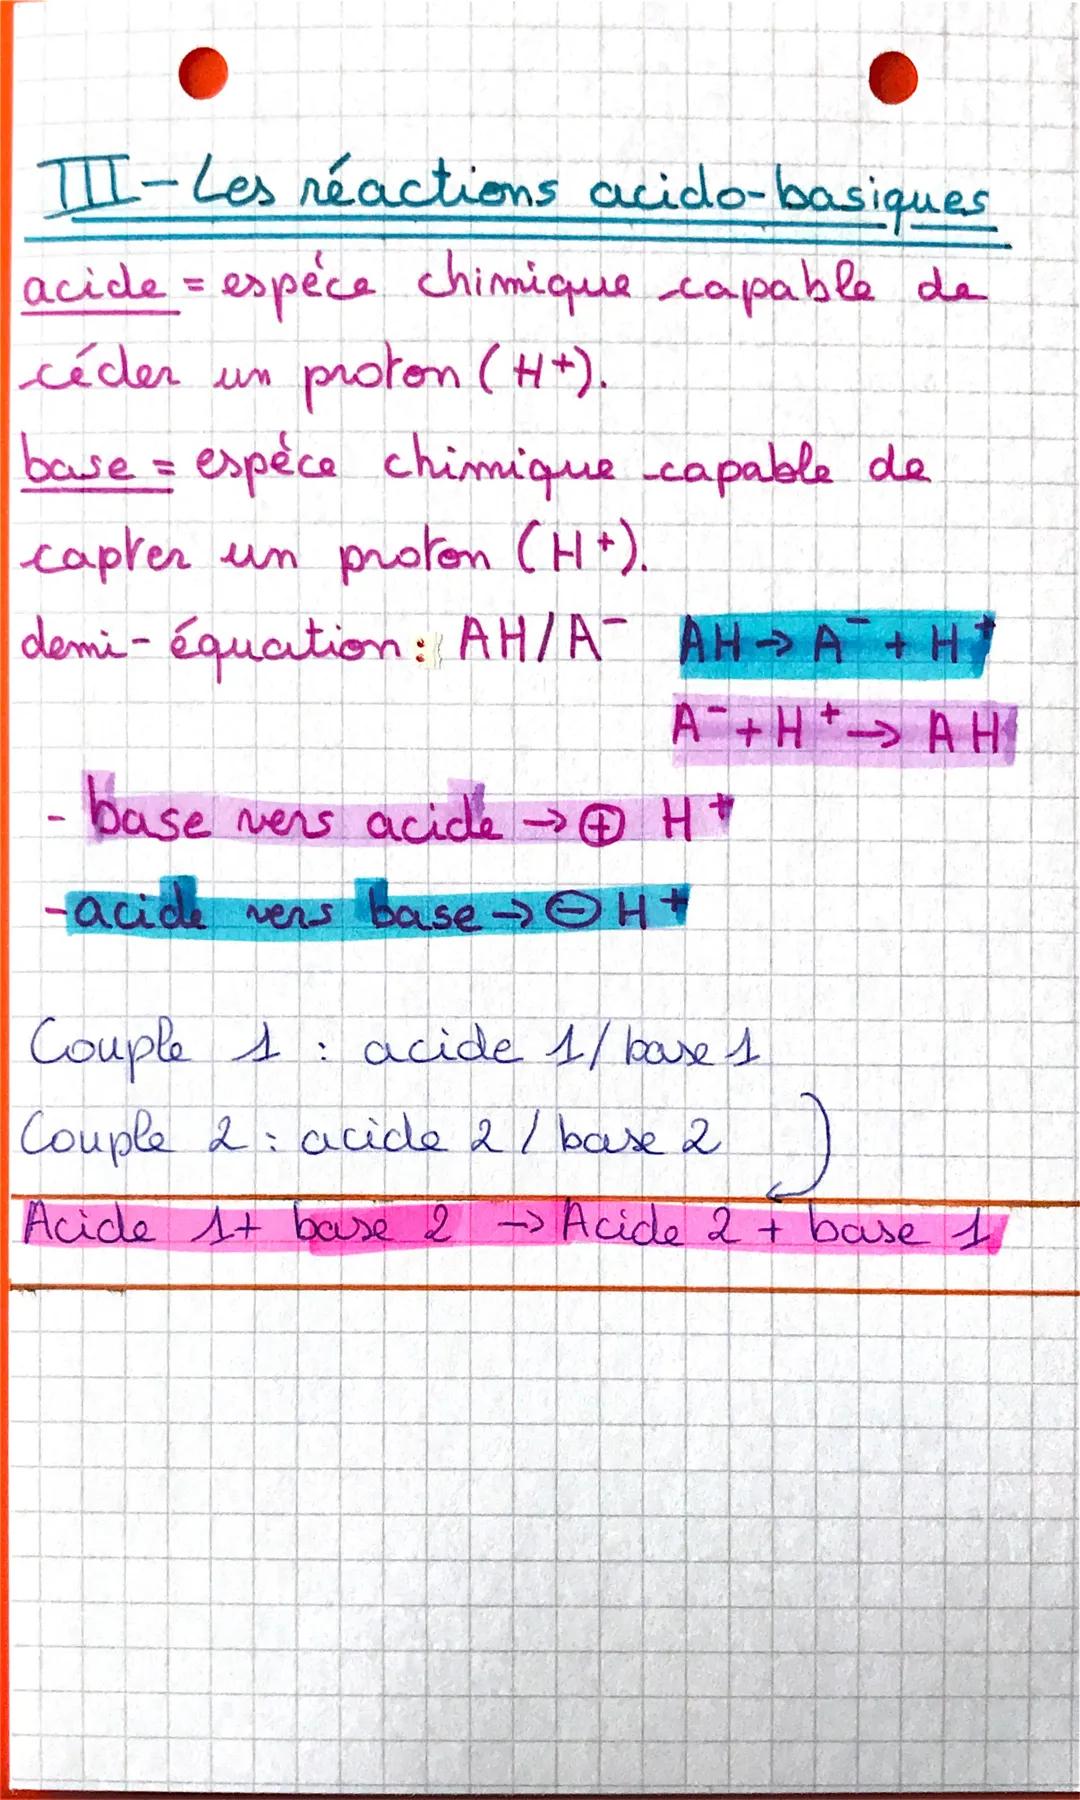 III - Les réactions acido-basiques
acide = espéce chimique capable de
céder un proton (H+).
base = espèce chimique capable de
capter un proton (H+).
demi-équation : AH/A⁻ AH → A⁻ + H⁺
A⁻ + H⁺ → AH
- base vers acide → ⊕ H⁺
- acide vers base → ⊖ H⁺
Couple 1 : acide 1/ base 1
Couple 2 : acide 2 / base 2
Acide 1 + base 2 → Acide 2 + base 1